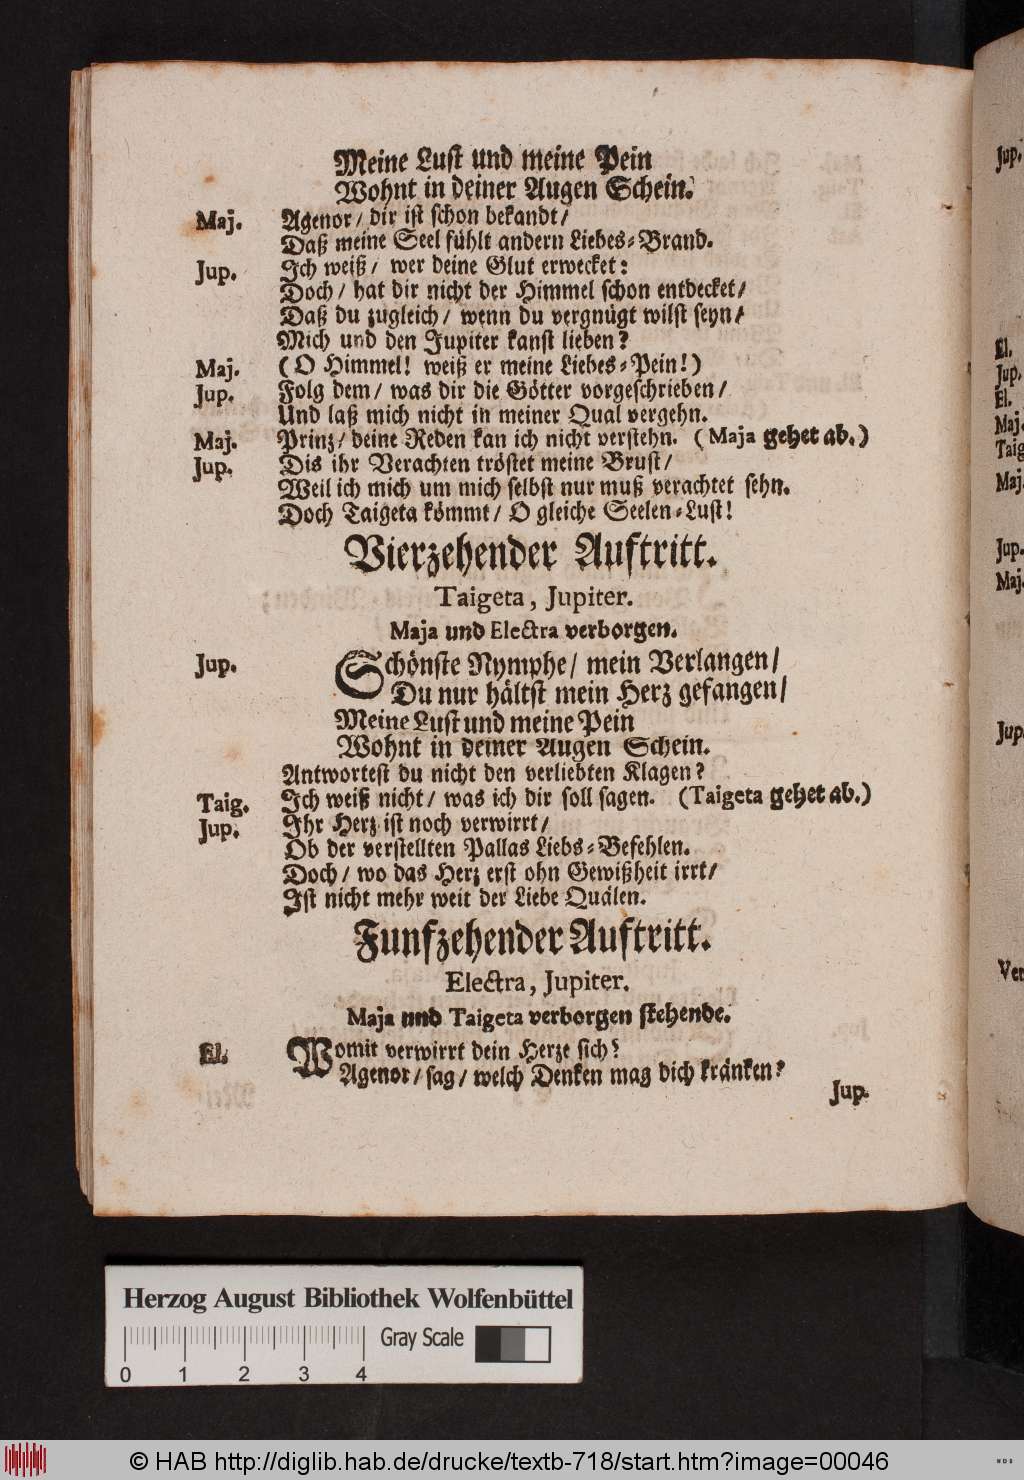 Meine Lust und meine Pein
Wohnt in deiner Augen Schein.
Maj. Agenor/ dir ist schon bekandt/
Daß meine Seel fühlt andern Liebes-Brand.
Jup. Ich weiß/ wer deine Glut erwecket:
Doch/ hat dir nicht der Himmel schon entdecket/
Daß du zugleich/ wenn du vergnügt wilst seyn/
Mich und den Jupiter kanst lieben?
Maj. (O Himmel! weiß er meine Liebes-Pein!)
Jup. Folg dem/ was dir die Götter vorgeschrieben/
Und laß mich nicht in meiner Qual vergehn.
Maj. Prinz/ deine Reden kan ich nicht verstehn. (Maja gehet ab.)
Jup. Dis ihr Verachten tröstet meine Brust/
Weil ich mich um mich selbst nur muß verachtet sehn.
Doch Taigeta kömmt/ O gleiche Seelen-Lust!
Vierzehender Auftritt.
Taigeta, Jupiter.
Maja und Electra verborgen.
Jup. Schönste Nymphe/ mein Verlangen/
Du nur hältst mein Herz gefangen/
Meine Lust und meine Pein
Wohnt in deiner Augen Schein.
Antwortest du nicht den verliebten Klagen?
Taig. Ich weiß nicht/ was ich dir soll sagen. (Taigeta gehet ab.)
Jup. Ihr Herz ist noch verwirrt/
Ob der verstellten Pallas Liebs-Befehlen.
Doch/ wo das Herz erst ohn Gewißheit irrt/
Ist nicht mehr weit der Liebe Quälen.
Funfzehender Auftritt.
Electra, Jupiter.
Maja und Taigeta verborgen stehende.
El. Womit verwirrt dein Herze sich?
Agenor/ sag/ welch Denken mag dich kränken?
Jup.
Jup.
El.
Jup.
El.
Maj.
Taig
Maj.
Jup.
Maj.
Jup.
Ver
Herzog August Bibliothek Wolfenbüttel
Gray Scale
0 1 2 3 4
© HAB http://diglib.hab.de/drucke/textb-718/start.htm?image=00046